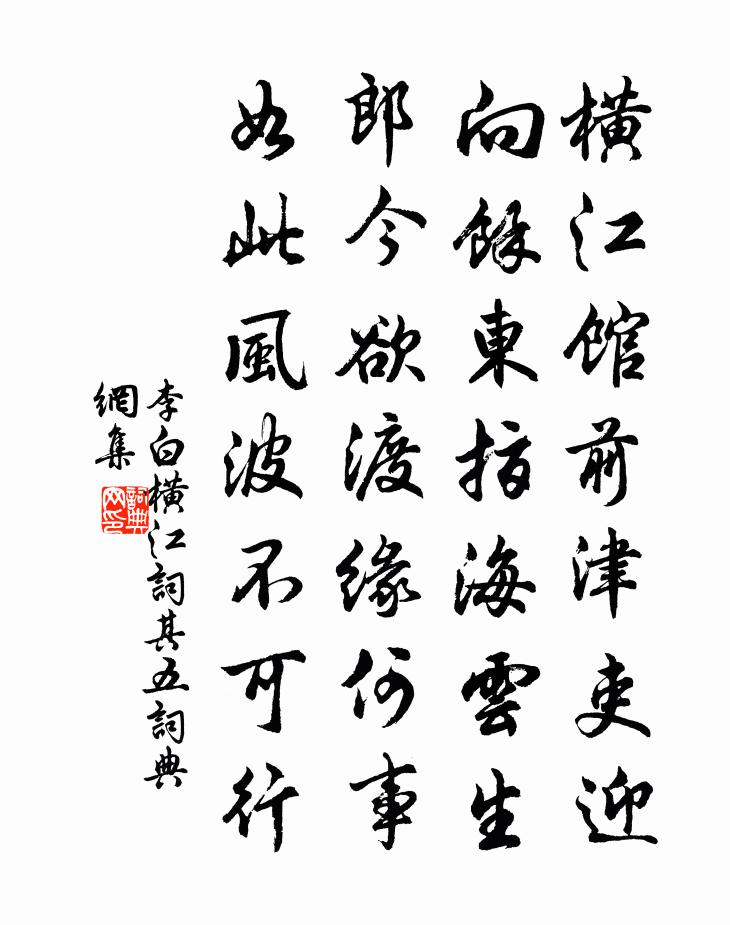 橫江館前津吏迎
向餘東指海雲生
郎今欲渡緣何事
如此風波不可行
李白橫江詞其五詞典
網集
詞典
网印